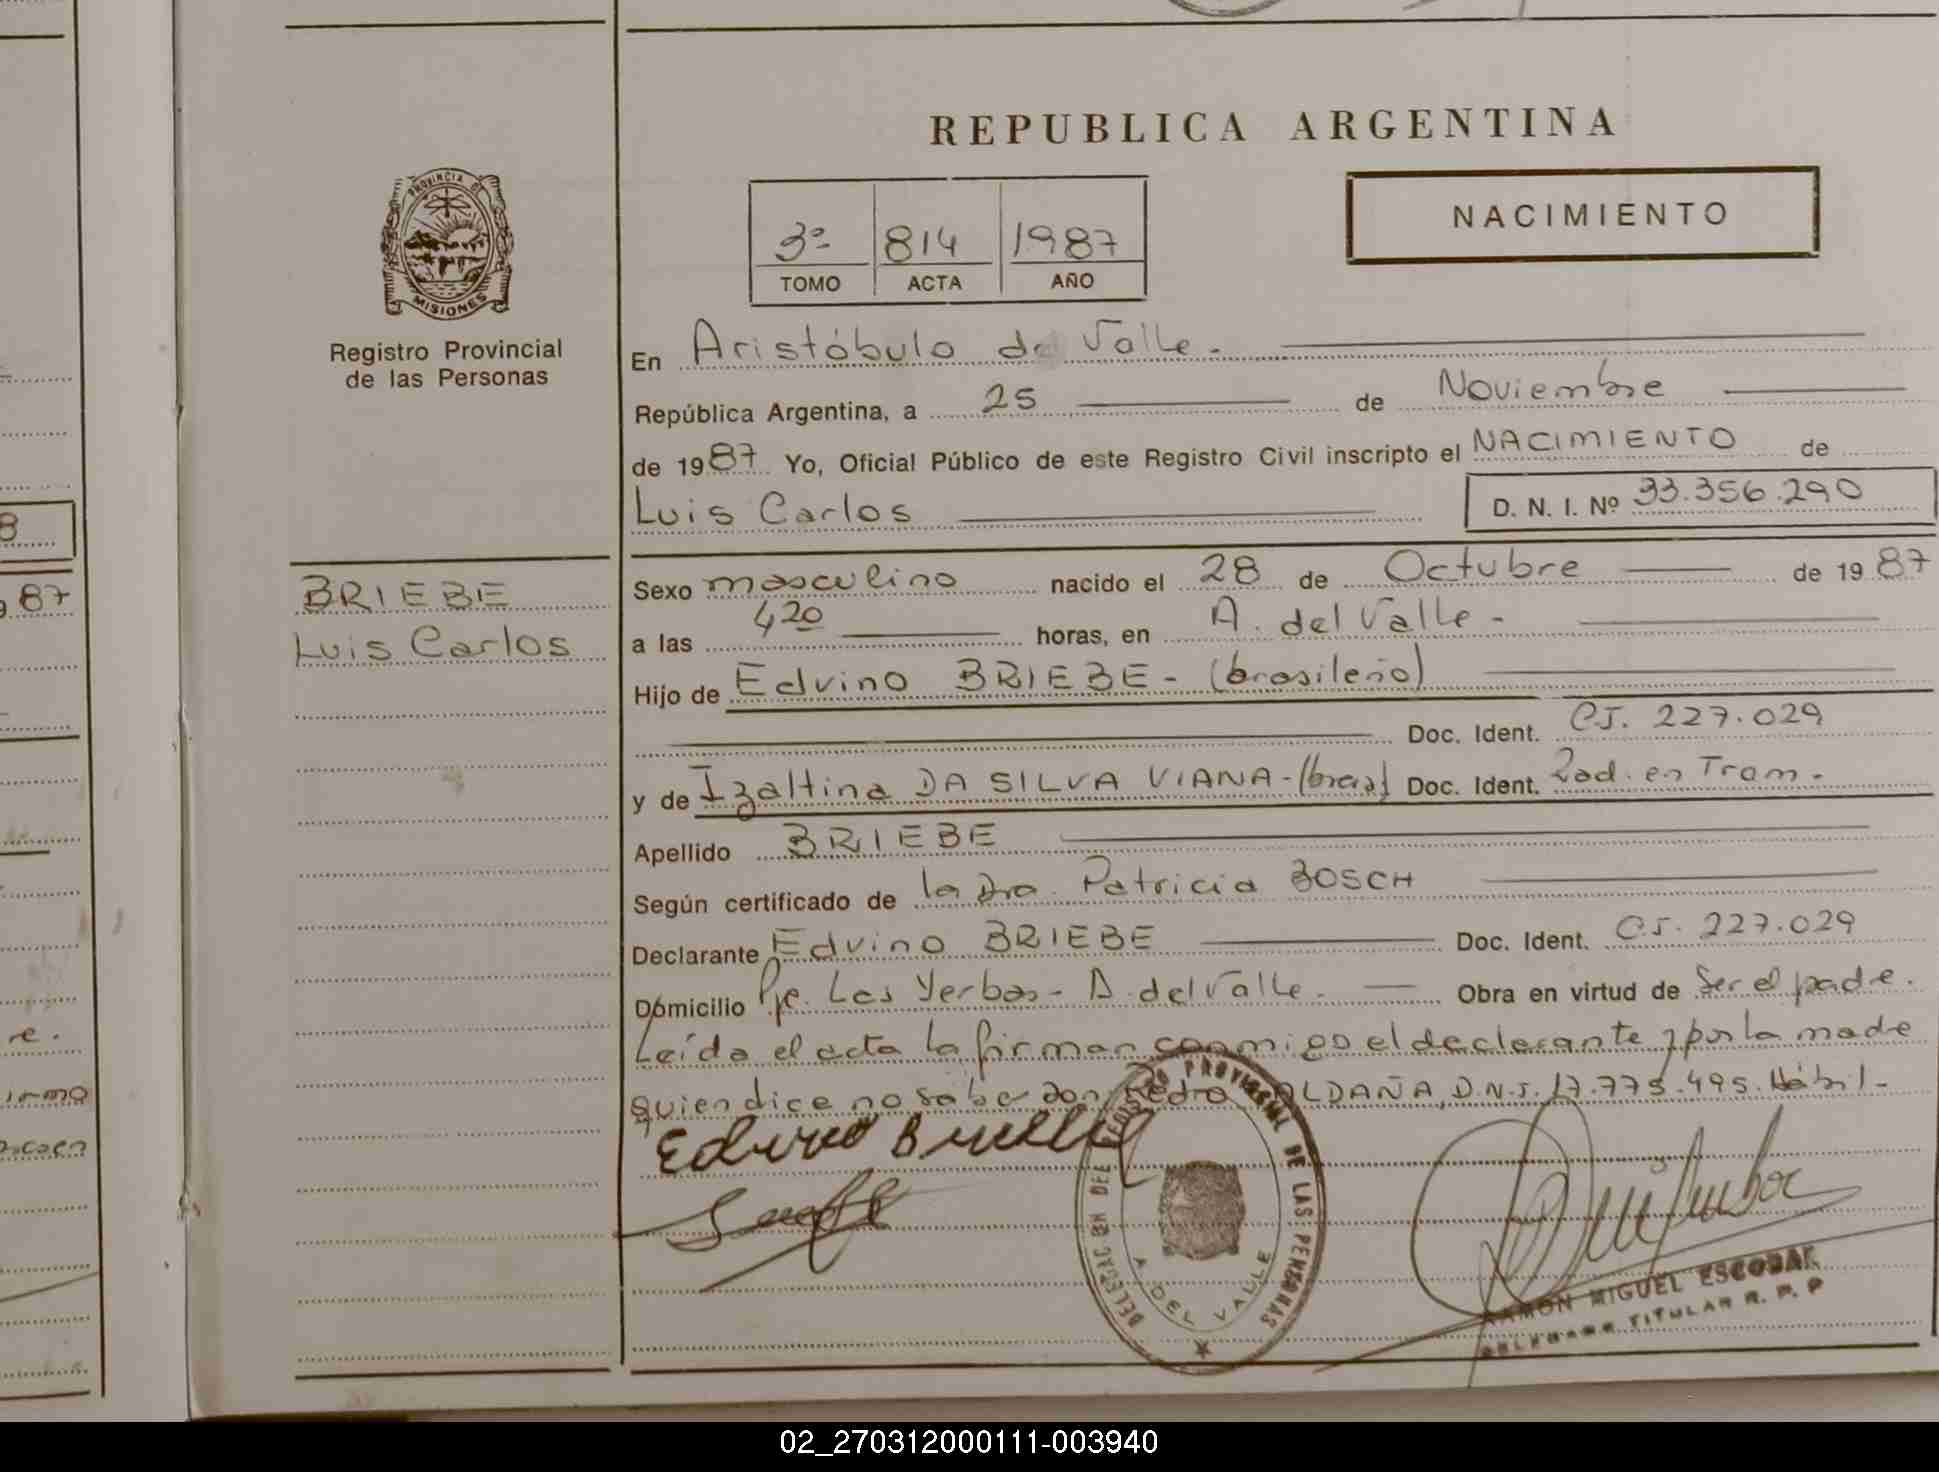 REPUBLICA ARGENTINA
NACIMIENTO
3º 814 1987
TOMO ACTA AÑO
PROVINCIA DE
MISIONES
Registro Provincial
de las Personas
En Aristóbulo del Valle.
República Argentina, a 25 de Noviembre
de 1987 Yo, Oficial Público de este Registro Civil inscripto el NACIMIENTO de
Luis Carlos D. N. I. Nº 33.356.290
BRIEBE
Luis Carlos
Sexo masculino nacido el 28 de Octubre de 1987
a las 4 20 horas, en A. del Valle -
Hijo de Edvino BRIEBE - (brasileño)
Doc. Ident. CI. 227.029
y de Izaltina DA SILVA VIANA - (bras) Doc. Ident. Rad. en Tram.
Apellido BRIEBE
Según certificado de la Dra. Patricia BOSCH
Declarante Edvino BRIEBE Doc. Ident. CI. 227.029
Domicilio Pje. Las Yerbas - A. del Valle. Obra en virtud de Ser el padre.
Leída el acta la firman conmigo el declarante y por la madre
quien dice no saber don Pedro ALDAÑA, D.N.I. 17.775.495. Hábil -
DELEGACION DEL REGISTRO PROVINCIAL DE LAS PERSONAS
A. DEL VALLE
RAMON MIGUEL ESCOBAR
DELEGADO TITULAR R. P. P
8
87
re.
02_270312000111-003940